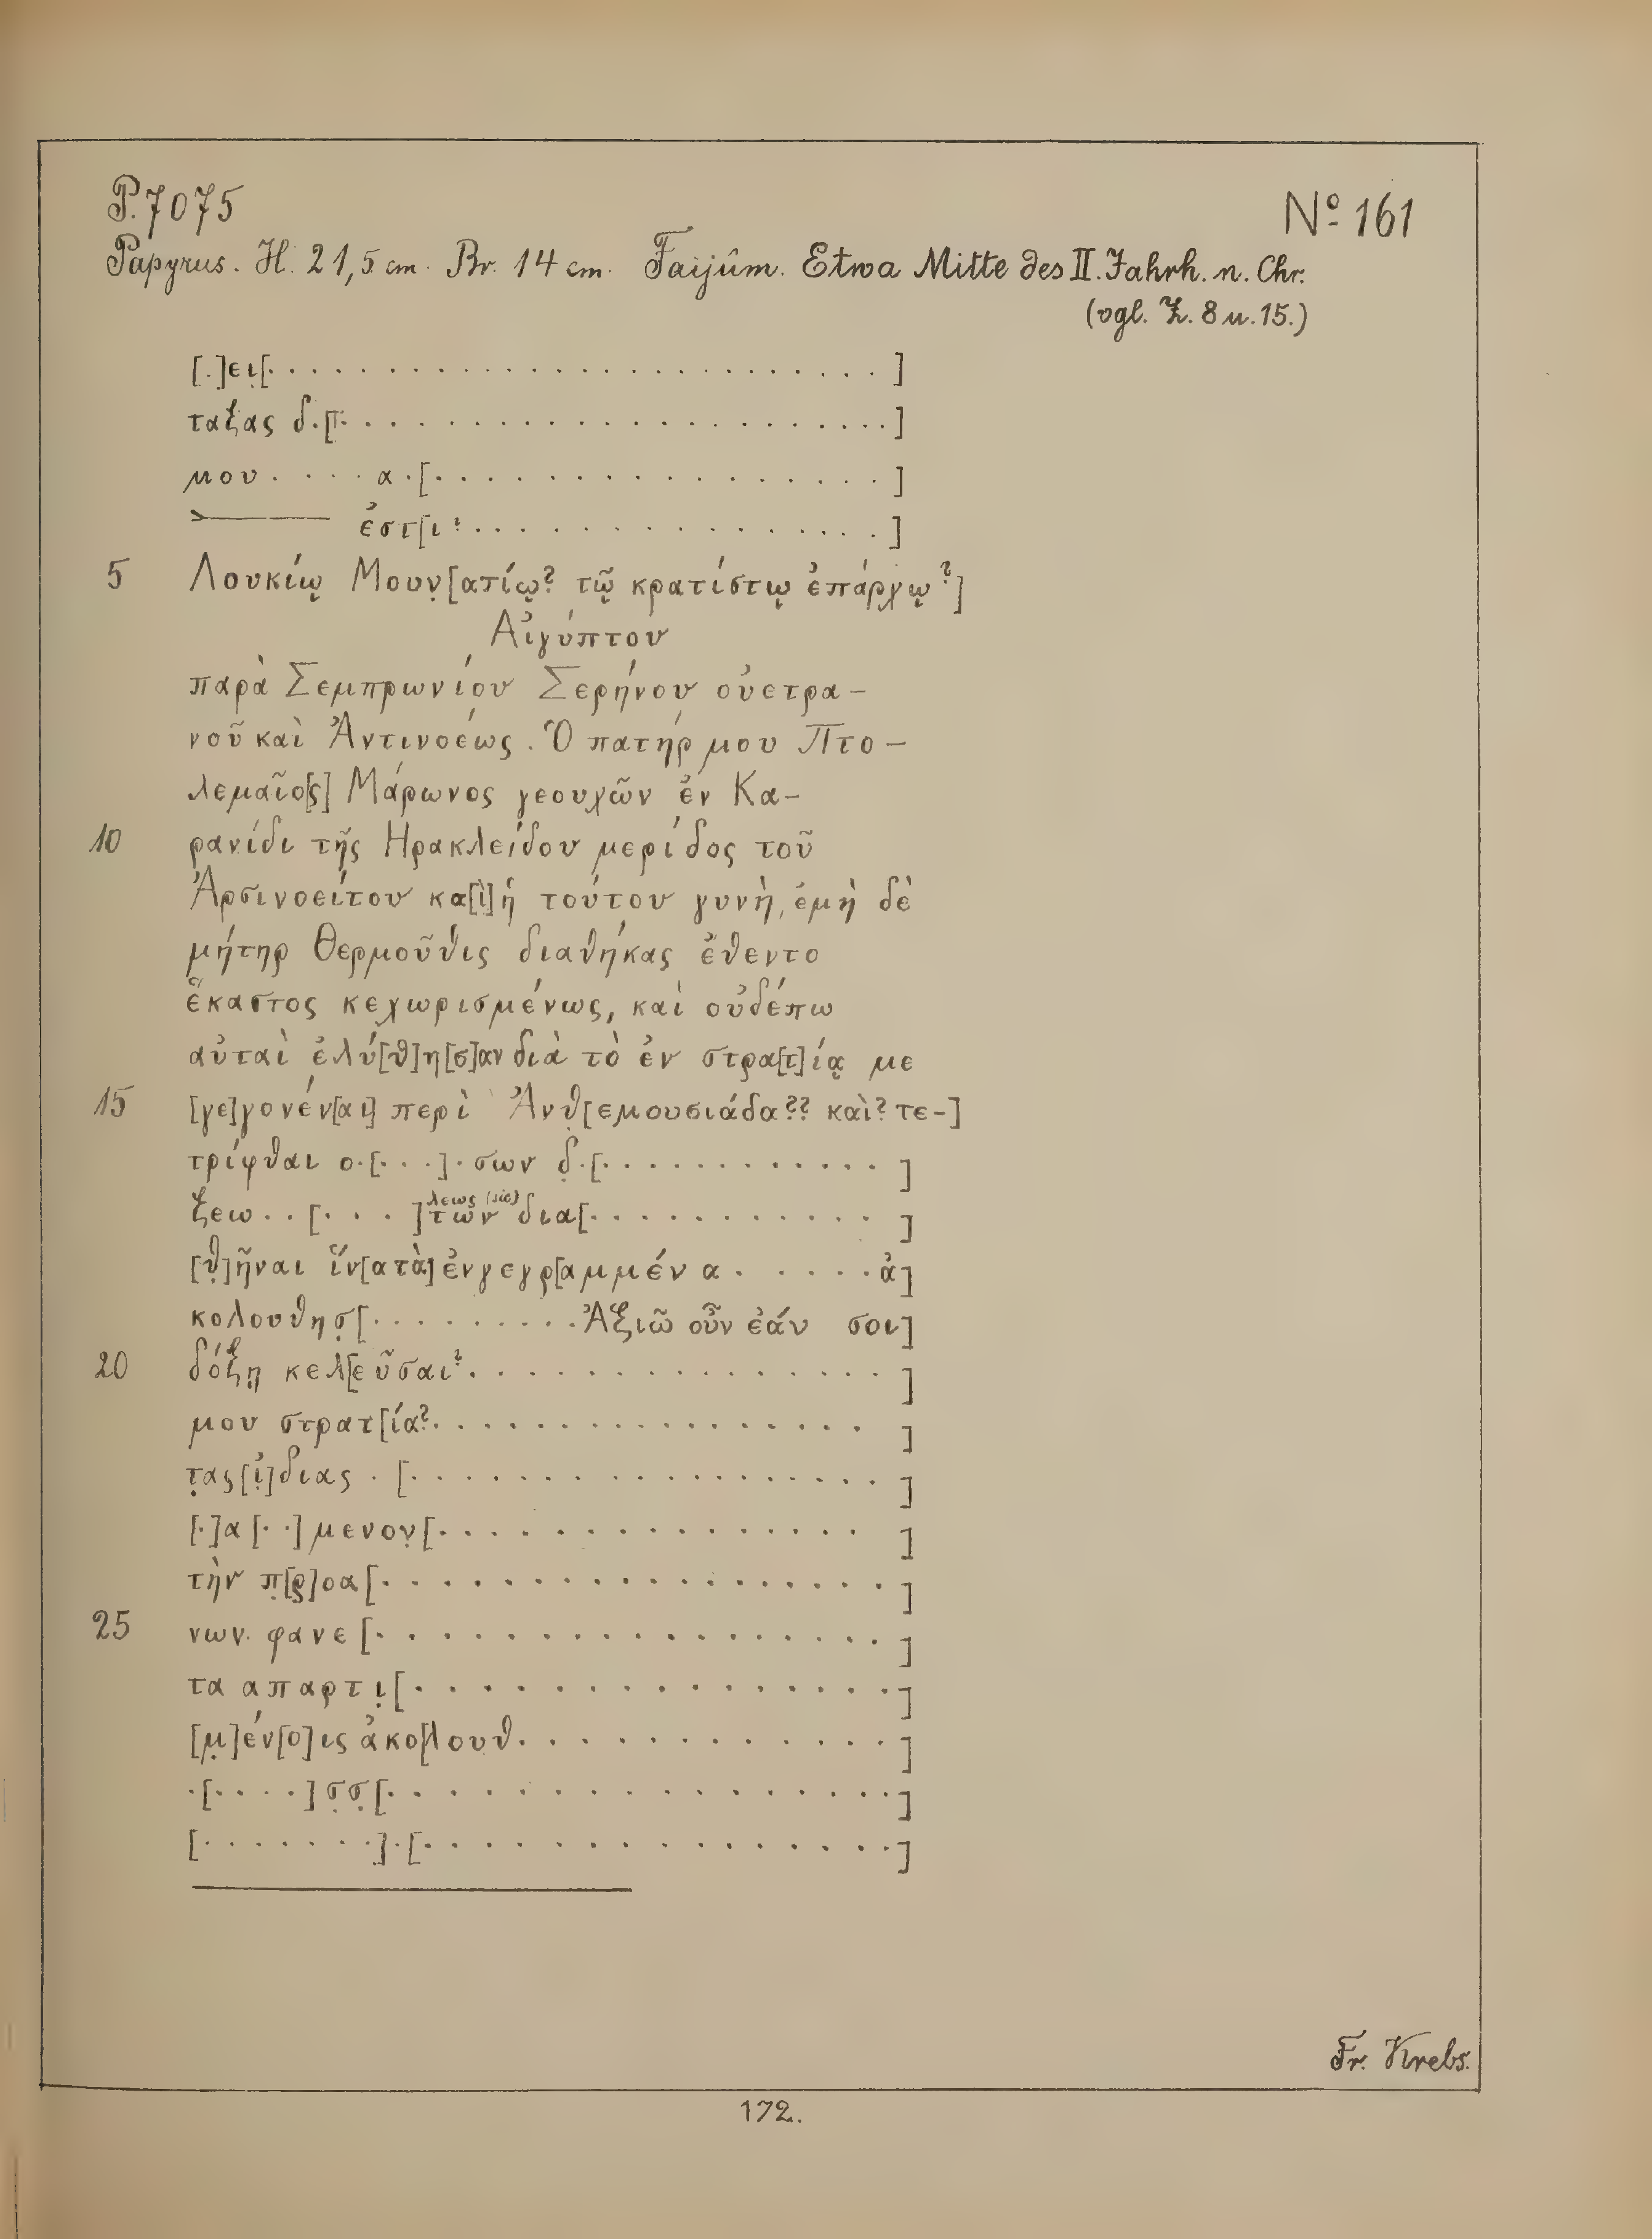 P. 7075
Nº 161
Papyrus. H. 21,5 cm. Br. 14 cm. Faijûm. Etwa Mitte des II. Jahrh. n. Chr.
(vgl. Z. 8 u. 15.)
[.]ει̣[. . . . . . . . . . . . . . . . . . . . . . . .]
ταξας δ.[. . . . . . . . . . . . . . . . . . . . . .]
μου . . . . α . [. . . . . . . . . . . . . . . . .]
>——— ἐστ[ι? . . . . . . . . . . . . . . .]
5 Λουκίῳ Μουν̣[ατίῳ? τῷ κρατίστῳ ἐπάρχῳ?]
Αἰγύπτου
παρὰ Σεμπρωνίου Σερήνου οὐετρα–
νοῦ καὶ Ἀντινοέως. Ὁ πατήρ μου Πτο–
λεμαῖο[ς] Μάρωνος γεουχῶν ἐν Κα–
10 ρανίδι τῆς Ἡρακλείδου μερίδος τοῦ
Ἀρσινοείτου κα[ὶ] ἡ τούτου γυνὴ, ἐμὴ δὲ
μήτηρ Θερμοῦθις διαθήκας ἔθεντο
ἕκαστος κεχωρισμένως, καὶ οὐδέπω
αὐταὶ ἐλύ[θ]η[σ]αν διὰ τὸ ἐν στρα[τ]ίᾳ με
15 [γε]γονέν[αι] περὶ Ἀνθ̣[εμουσιάδα?? καὶ? τε-]
τρίφθαι ο.[. . .].σων δ̣.[. . . . . . . . . . . .]
ξεω . . [. . . .]των λεως (sic) δια[. . . . . . . . . . .]
[θ̣]ῆναι ἵν[α τὰ] ἐνγεγρ[αμμένα . . . . . ἀ]
κολουθησ̣[. . . . . . . . . . Ἀξιῶ οὖν ἐάν σοι]
20 δόξῃ κελ[εῦσαι? . . . . . . . . . . . . . . .]
μου στρατ[ία? . . . . . . . . . . . . . . . . .]
τ̣ας [ἰ̣]διας . [. . . . . . . . . . . . . . . . . .]
[.]α[. .]μενον̣[. . . . . . . . . . . . . . . .]
τὴν π̣[ρ̣]οα[. . . . . . . . . . . . . . . . . .]
25 νων φανε[. . . . . . . . . . . . . . . . .]
τα απαρτι̣[. . . . . . . . . . . . . . . .]
[μ̣]έν[ο]ις ἀκο[λουθ . . . . . . . . . . . . .]
.[. . . .]σ̣σ̣[. . . . . . . . . . . . . . . . .]
[. . . . . . .].[. . . . . . . . . . . . . . . .]
Fr. Krebs.
172.